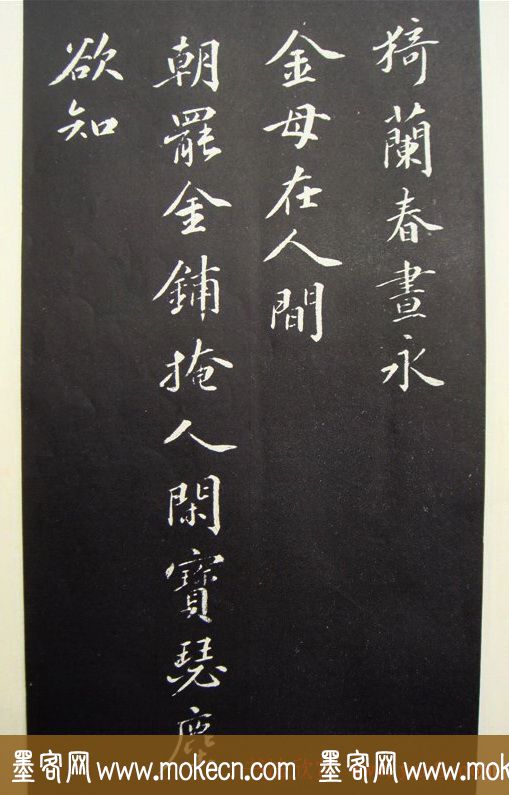 猗蘭春晝永
金母在人間
朝罷金鋪掩人閑寶瑟塵
欲知
墨客网 www.mokecn.com 墨客网 www.mokecn.com